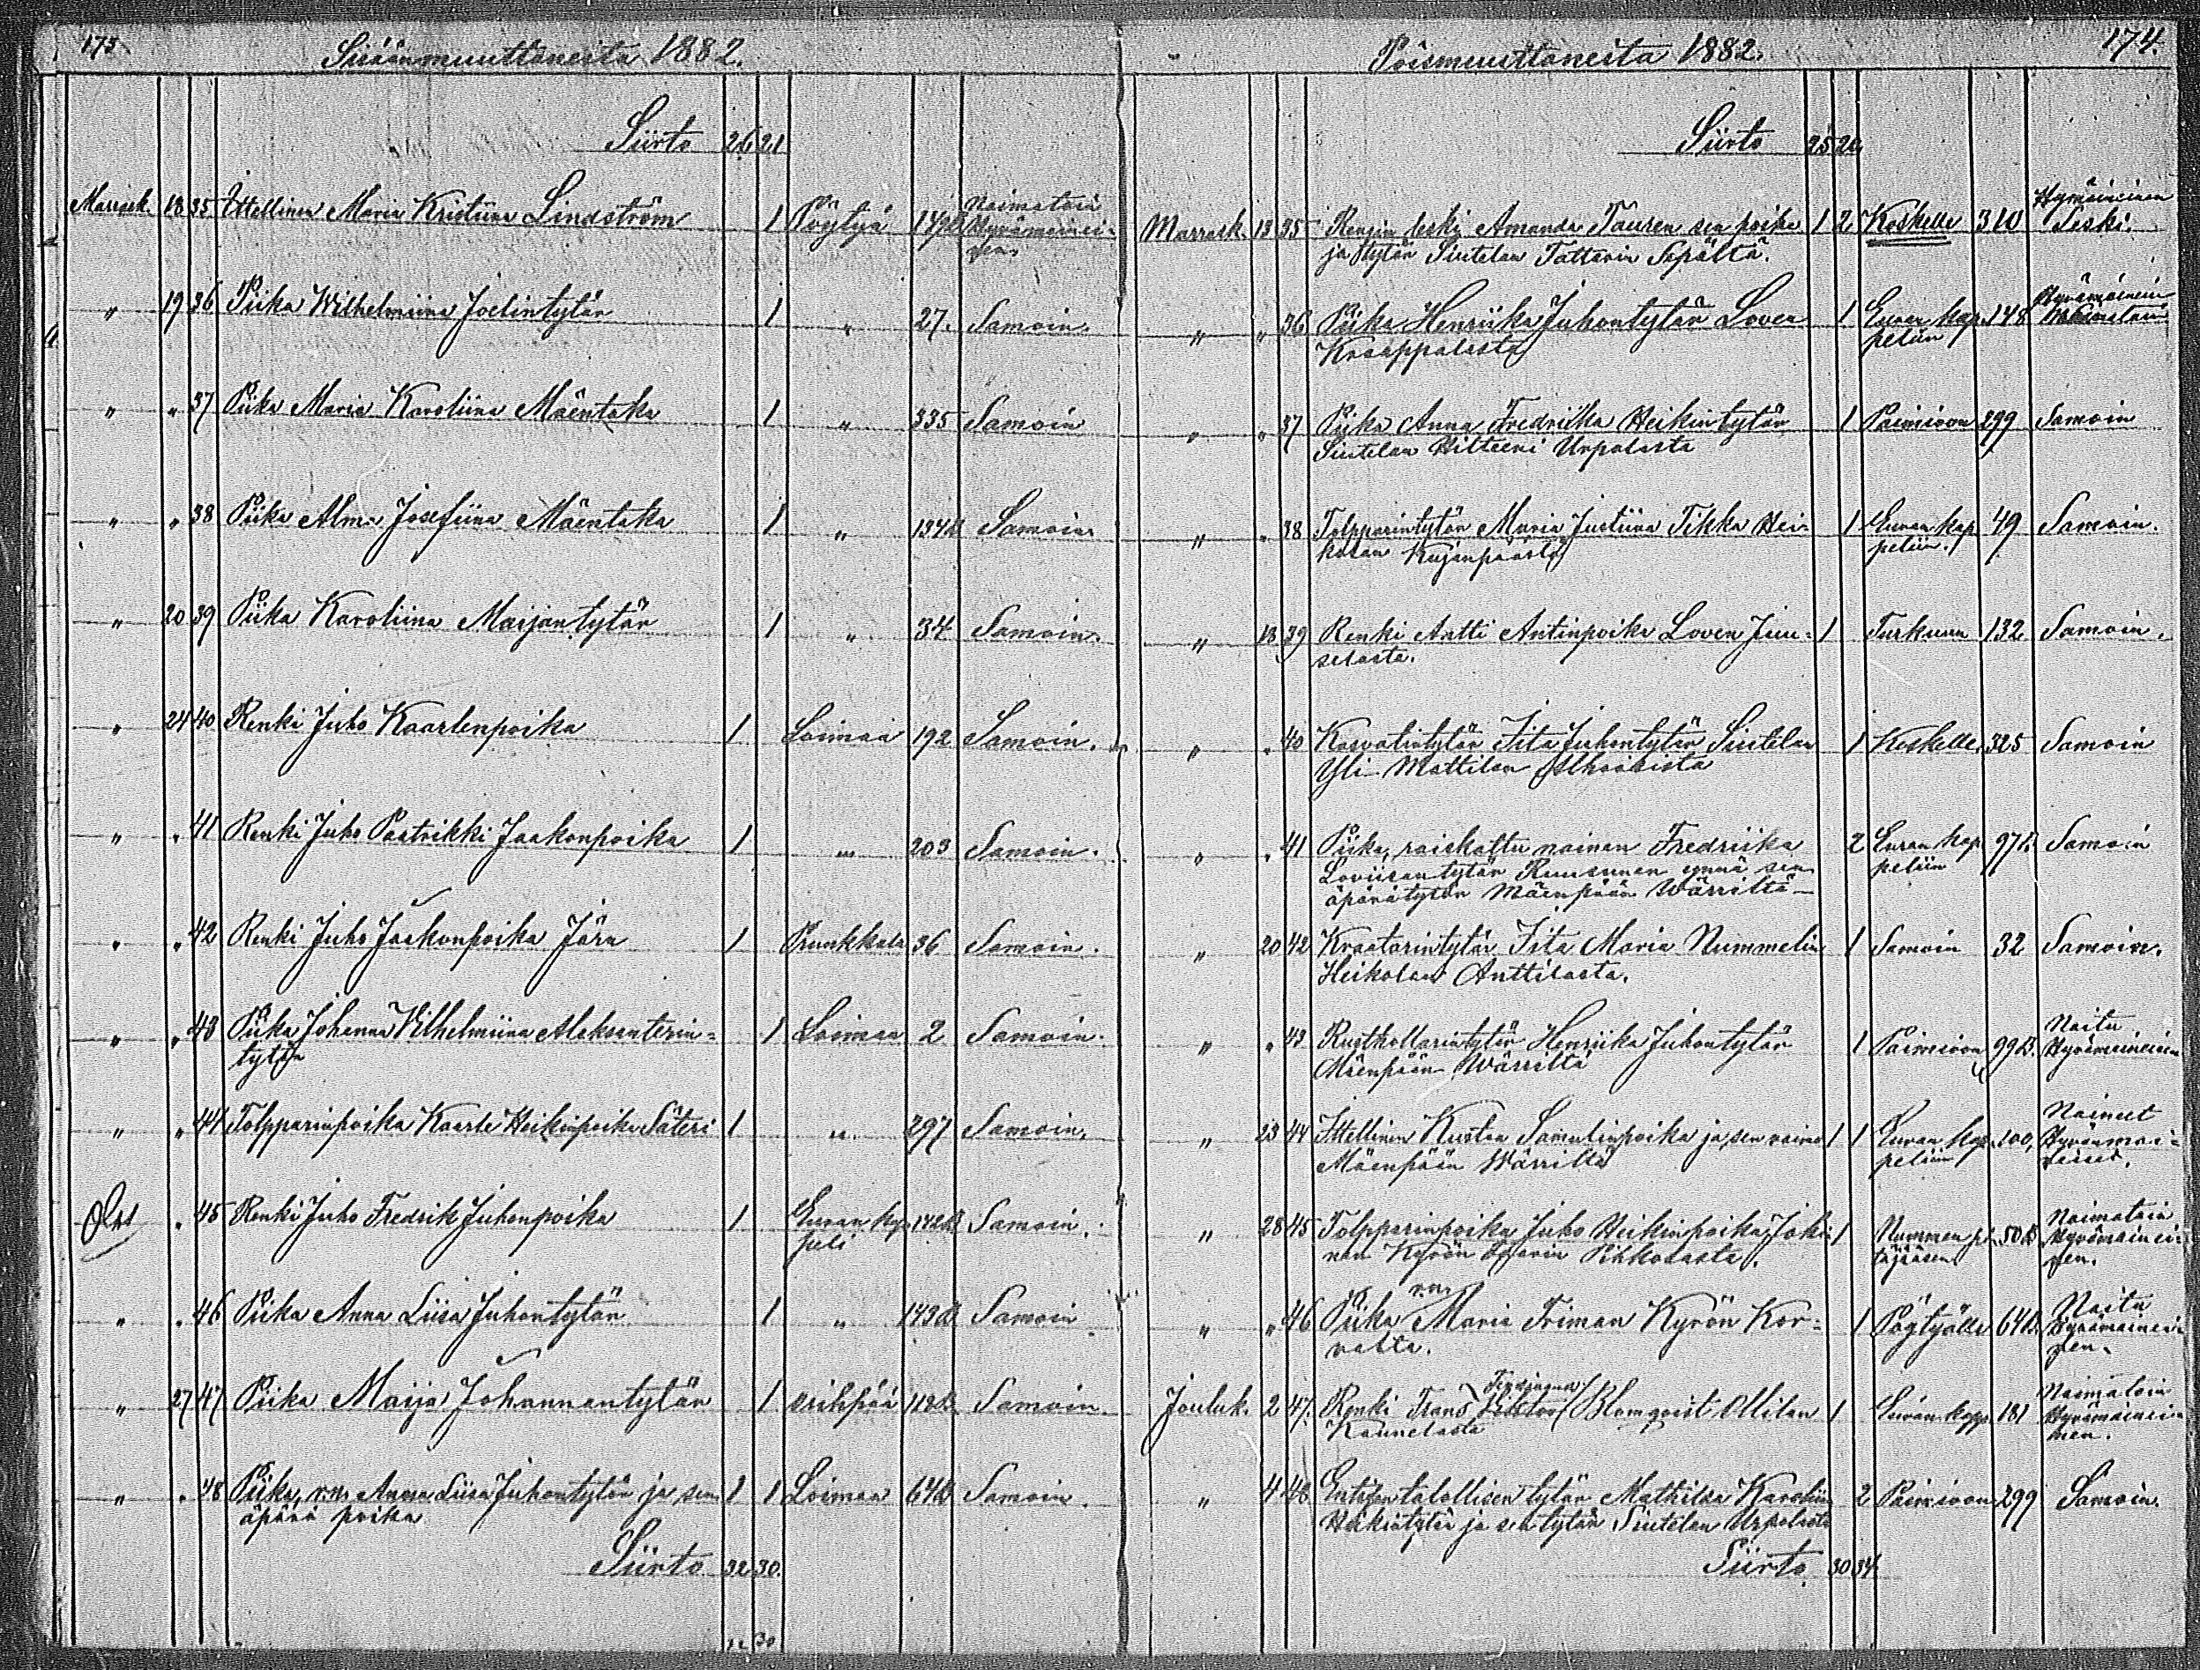 173
Sisäänmuuttaneita 1882.
Siirto 26 21
Marrask. 18 35 Ittellinen Maria Kristiina Lindström 1 Pöytyä 149B Naimatoin
Hyvämainei-
nen.
" 19 36 Piika Wilhelmiina Joelintytär 1 " 27. Samoin.
" " 37 Piika Maria Karoliina Mäentaka 1 " 335 Samoin
" " 38 Piika Alma Josefiina Mäentaka 1 " 134B Samoin
" 20 39 Piika Karoliina Maijantytär 1 " 34 Samoin.
" 24 40 Renki Juho Kaarlenpoika 1 Loimaa 192 Samoin.
" " 41 Renki Juho Paatrikki Jaakonpoika 1 " 203 Samoin.
" " 42 Renki Juho Jaakonpoika Järn 1 Prunkkala 36 Samoin.
" " 43 Piika Johanna Vilhelmiina Aleksanterin-
tytär 1 Loimaa 2 Samoin.
" " 44 Tolpparinpoika Kaarle Heikinpoika Säteri 1 " 297 Samoin.
" 45 Renki Juho Fredrik Juhonpoika 1 Euran kap-
peli 142B Samoin.
" " 46 Piika Anna Liisa Juhontytär 1 " 143B Samoin
" 27 47 Piika Maija Johannantytär 1 112B Samoin.
" " 48 Piika, r.n. Anna Liisa Juhontytär ja sen
äpärä poika 1 1 Loimaa 64B Samoin.
Siirto 32 30.
174
Poismuuttaneita 1882.
Siirto 25 20
Marrask. 13 35 Rengin leski Amanda Tauren sen poika
ja tytär Siutelan Tattarin Sepältä. 1 2 Koskelle 310 Hyvämaineinen
Leski.
" " 36 Piika Henriika Juhontytär Loven
Kraappalasta 1 Euran kap-
peliin 148 Hyvämainein
" " 37 Piika Anna Fredriika Heikintytär
Siutelan Hitteeni Urpolasta 1 Paimioon 299 Samoin
" " 38 Tolpparintytär Maria Justiina Tikka Hei-
kolan Kujanpäästä 1 Euran kap-
peliin. 49 Samoin.
" 18 39 Renki Antti Antinpoika Loven Juu-
selasta. 1 Turkuun 132 Samoin.
" " 40 Kasvatintytär Iita Juhontytär Siutelan
Yli-Mattilan 1 Koskelle 325 Samoin
" " 41 Piika, raiskattu nainen Fredriika
Loviisantytär Ruusunen ynnä sen
äpärätytär Mäenpään Wärriltä 2 Euran kap-
peliin 97B Samoin
" 20 42 Kraatarintytär Iita Maria Nummelin
Heikolan Anttilasta. 1 Samoin 32 Samoin.
" " 43 Rusthollarintytär Henriika Juhontytär
Mäenpään Wärriltä 1 Paimioon 99B. Naitu
Hyvämaineinen
" 23 44 Ittellinen Kustaa Samulinpoika ja sen vaimo
Mäenpään Wärriltä 1 1 Euran kap-
peliin 100, Naineet
Hyvämai-
neiset.
" 28 45 Tolpparinpoika Juho Heikinpoika Joki-
nen Kyrön Pikkolasta. 1 Nummen pi-
täjääsen 50B Naimatoin
Hyvämainei-
nen.
" " 46 Piika r.n. Maria Friman Kyrön Kor-
valta. 1 Pöytyälle 64B. Naitu
Hyvämainei-
nen.
Jouluk. 2 47. Renki Frans Blomqvist Ollilan
Kaunelasta 1 Euran kapp. 181 Naimatoin
Hyvämainei-
nen.
" 4 48 Entisen talollisen tytär Mathilda Karoliina
Heikintytär ja sen tytär Siutelan Urpolasta 2 Paimioon 299 Samoin.
Siirto 30 34.